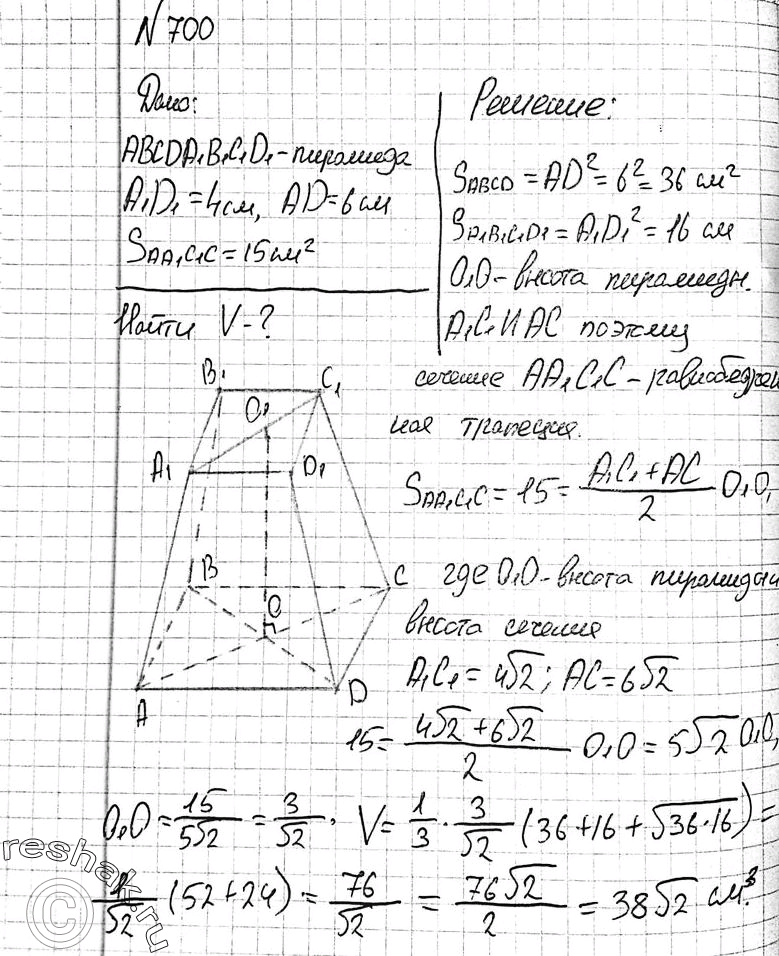 N 700
Дано:
ABCDA₁B₁C₁D₁ - пирамида
A₁D₁ = 4 см, AD = 6 см
S_AA₁C₁C = 15 см²
Найти V - ?
Решение:
S_ABCD = AD² = 6² = 36 см²
S_A₁B₁C₁D₁ = A₁D₁² = 16 см
O₁O - высота пирамиды.
A₁C₁ И AC поэтому
сечение AA₁C₁C - равнобедрен
ная трапеция.
S_AA₁C₁C = 15 = (A₁C₁ + AC)/2 O₁O,
где O₁O - высота пирамиды и
высота сечения
A₁C₁ = 4√2; AC = 6√2
15 = (4√2 + 6√2)/2 O₁O = 5√2 O₁O,
O₁O = 15/(5√2) = 3/√2. V = 1/3 · 3/√2 (36 + 16 + √(36·16)) =
1/√2 (52 + 24) = 76/√2 = 76√2/2 = 38√2 см³.
B₁ C₁
O₁
A₁ D₁
B C
O
A D
reshak.ru
©